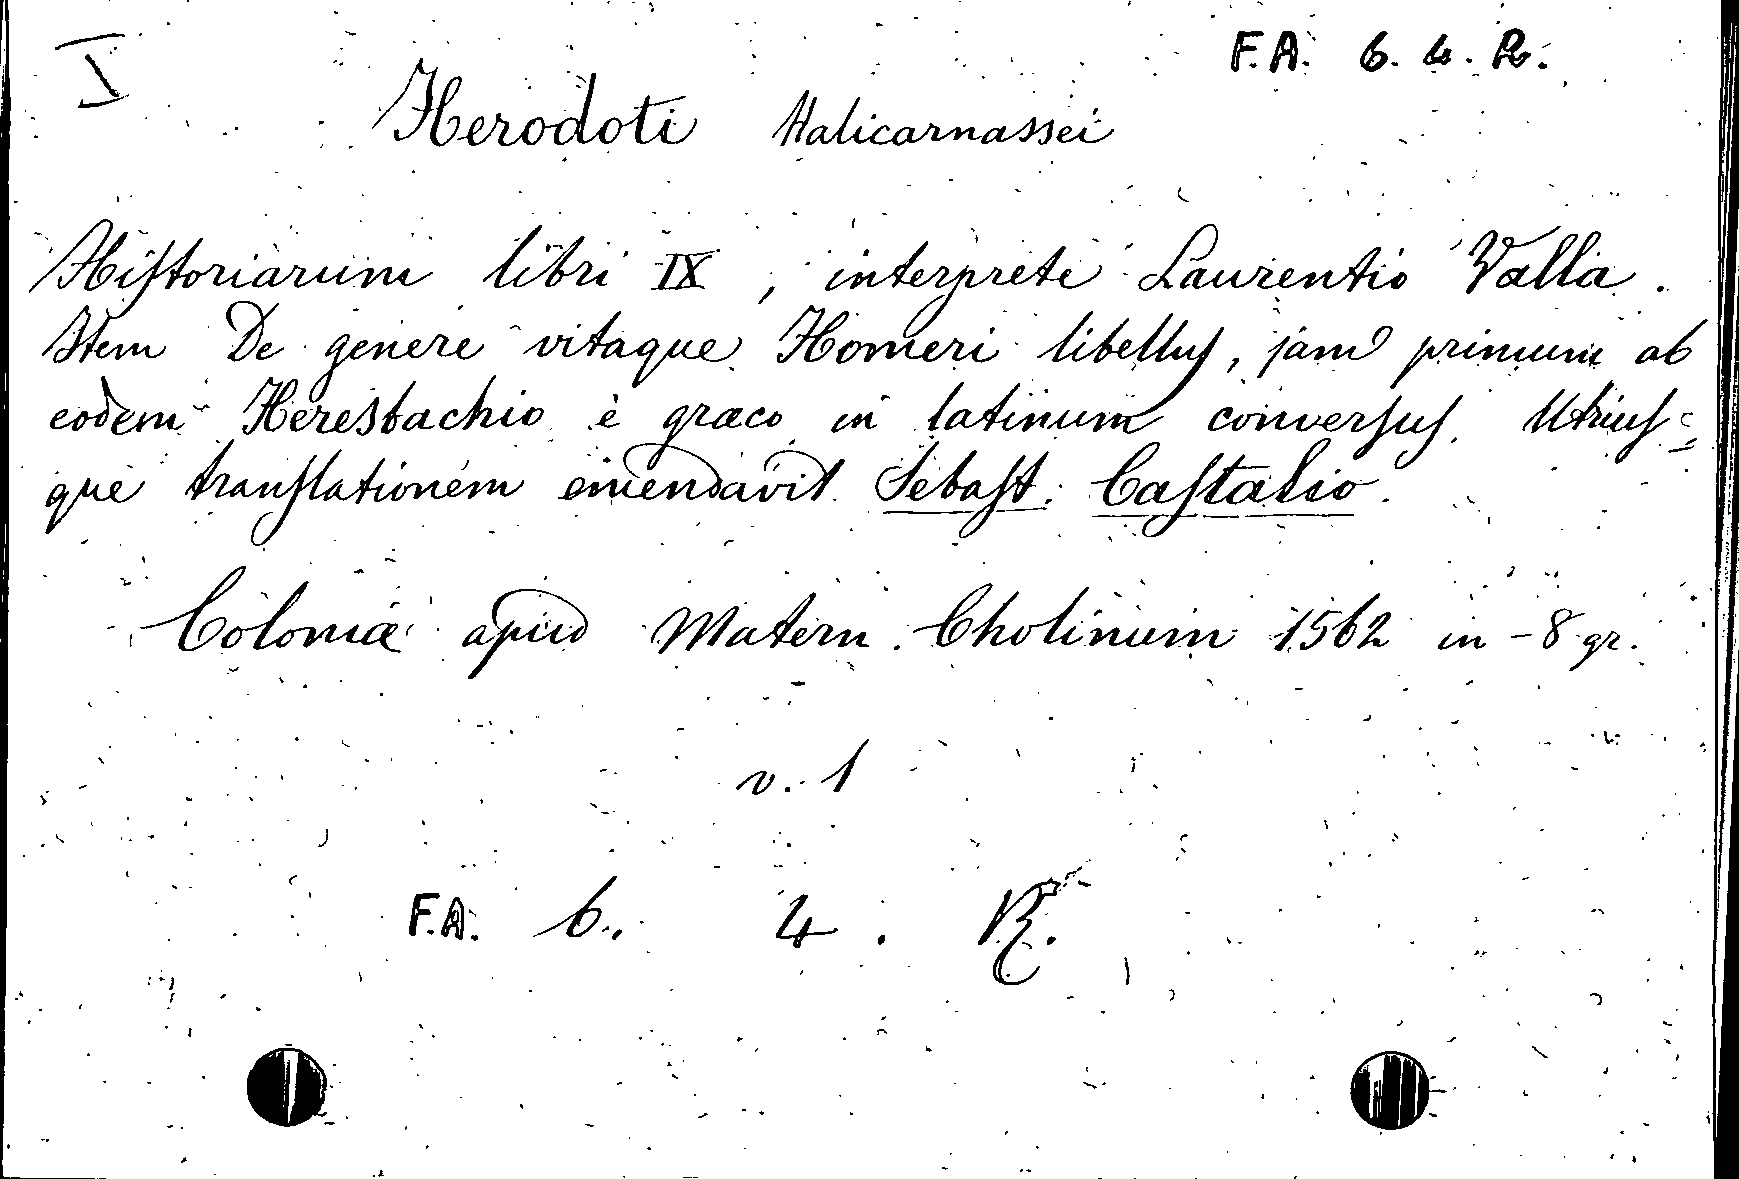 I
F.A. 6. 4. R.
Herodoti Halicarnassei
Hiſtoriarum libri IX, interprete Laurentio Valla.
Item De genere vitaque Homeri libelluſ, jam primum ab
eodem Heresbachio è græco in latinum converſuſ. Utriuſ=
que tranſlationem emendavit Sebaſt. Caſtalio.
Coloniæ apud Matern. Cholinum 1562 in-8 gr.
v. 1
F.A. 6. 4. R.